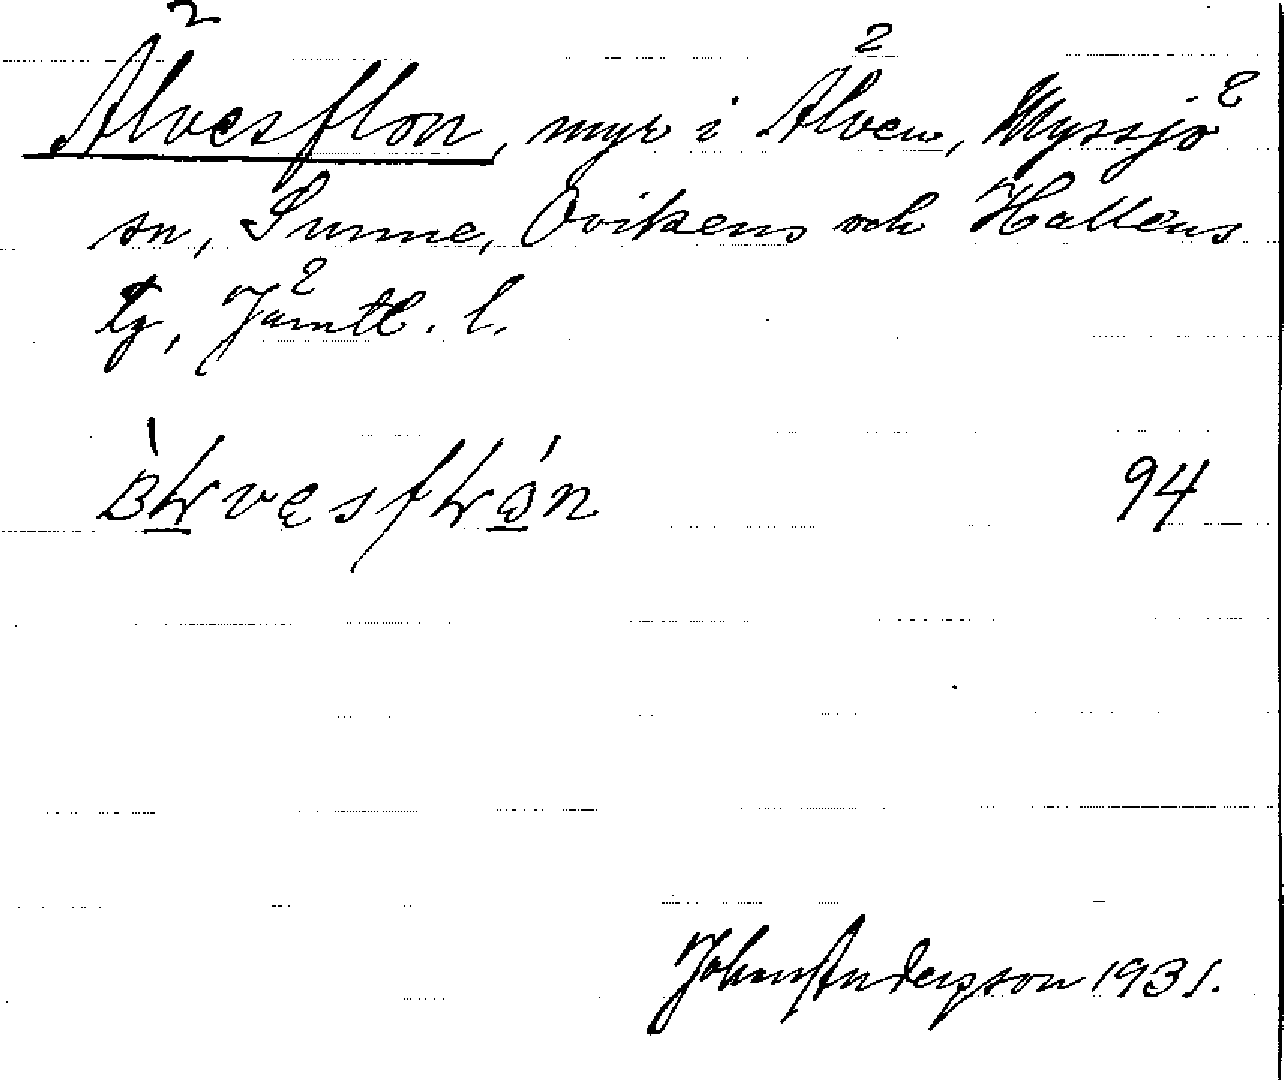 Älvesflon, myr i Älven, Myssjö
sn, Sunne, Ovikens och Hallens
tg, Jämtl. l.
94
John Anderson 1931.